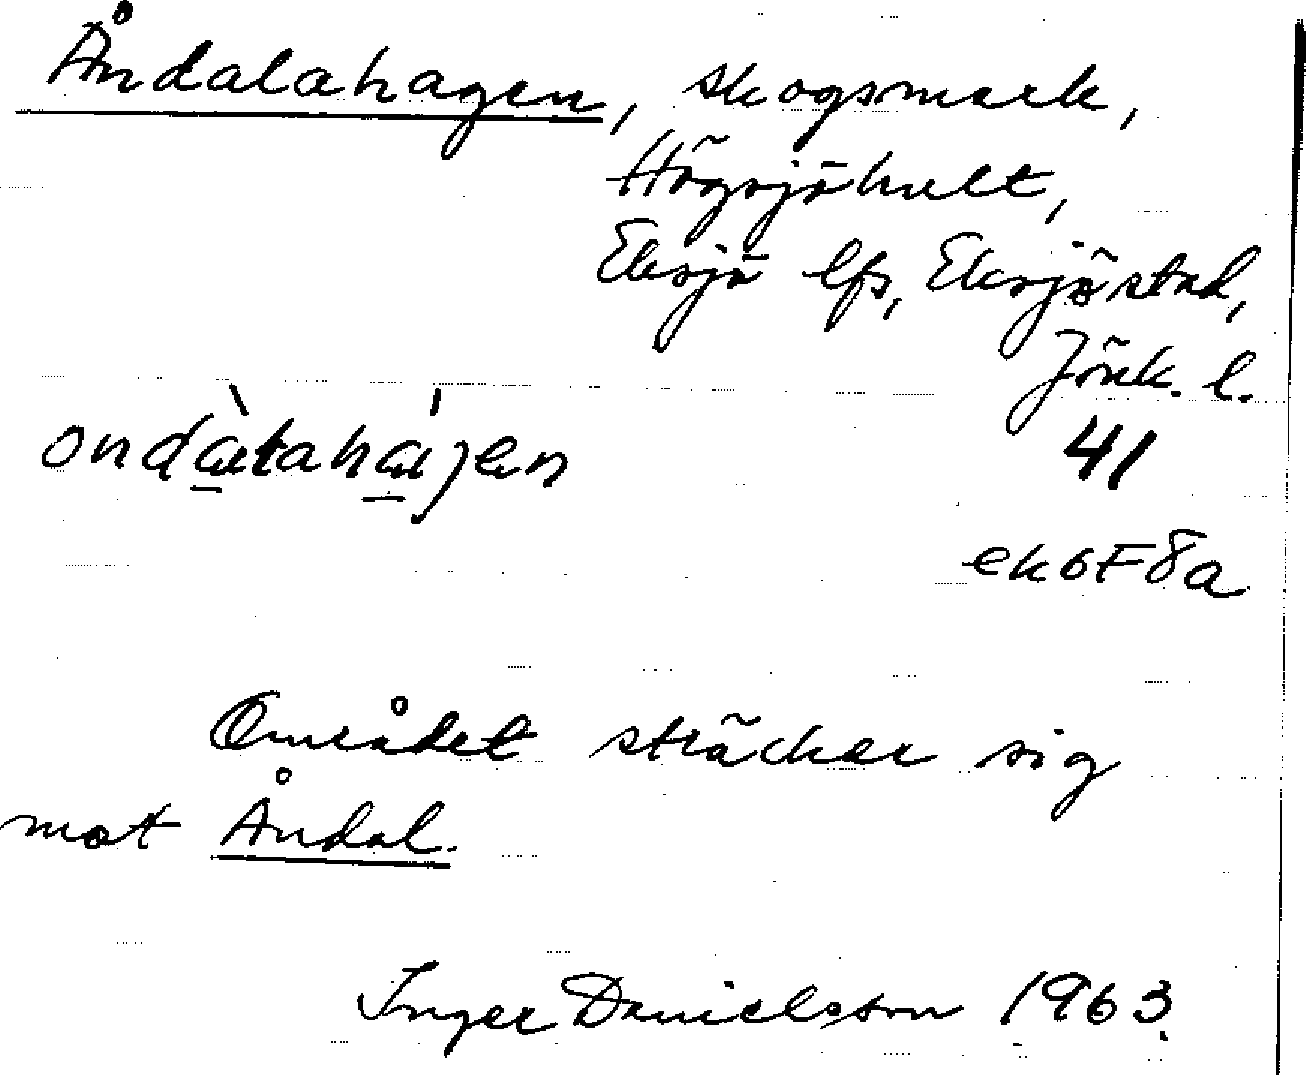 Åndalahagen, skogsmark,
Högsjöhult,
Eksjö lfs, Eksjö stad,
Jönk. l.
ondàlahájen
41
ek 6F8a
Området sträcker sig
mot Åndal.
Inger Danielsson 1963.